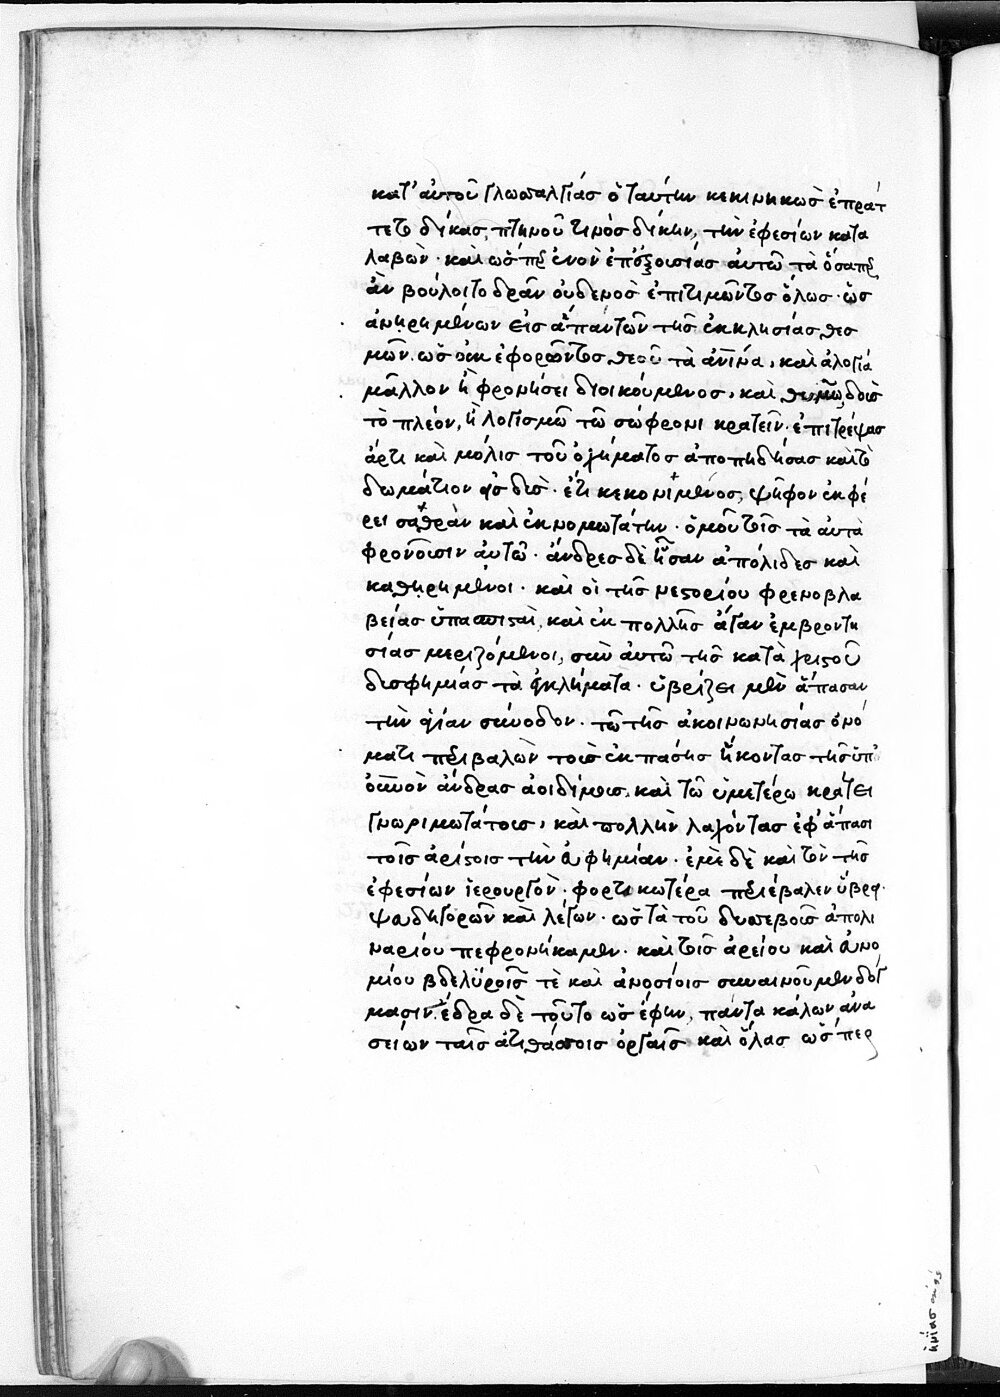 κατ' αὐτοῦ γλωσσαλγίας ὁ ταύτην κεκινηκὼς ἐπράτ
τετο δίκας, πτηνοῦ τινὸς δίκην, τὴν ἐφεσίων κατα
λαβών · καὶ ὥσπερ ἐνὸν ἐπ' ἐξουσίας αὐτῶ τὰ ὅσαπερ
ἂν βούλοιτο δρᾶν οὐδενὸς ἐπιτιμῶντος ὅλως · ὡς
ἀνῃρημένων εἰς ἅπαν τῶν τῆς ἐκκλησίας θεσ
μῶν. ὡς οὐκ ἐφορῶντος θεοῦ τὰ ἀνῖνα, καὶ ἀλογία
μᾶλλον ἢ φρονήσει διοικούμενος, καὶ θυμῶ δοὺς
τὸ πλέον, ἢ λογισμῶ τῶ σώφρονι κρατεῖν · ἐπιτρέψας
ἄρτι καὶ μόλις τοῦ ὀχήματος ἀποπηδήσας καὶ τὸ
δωμάτιον εἰσδύς · ἔτι κεκονιμένος, ψῆφον ἐκφέ
ρει σαθρὰν καὶ ἐκνομωτάτην · ὁμοῦ τοῖς τὰ αὐτὰ
φρονοῦσιν αὐτῶ · ἄνδρες δὲ ἦσαν ἀπόλιδες καὶ
καθῃρημένοι · καὶ οἱ τῆς νεστορίου φρενοβλα
βείας ὑπασπισταὶ, καὶ ἐκ πολλῆς ἄγαν ἐμβροντη
σίας μεριζόμενοι, σὺν αὐτῶ τῆς κατὰ χριστοῦ
δυσφημίας τὰ ἐγκλήματα · ὑβρίζει μὲν ἅπασαν
τὴν ἁγίαν σύνοδον · τῶ τῆς ἀκοινωνησίας ὀνό
ματι περιβαλὼν τοὺς ἐκ πάσης ἥκοντας τῆς ὑπ'
οὐρανὸν ἄνδρας ἀοιδίμους, καὶ τῶ ὑμετέρω κράτει
γνωριμωτάτους, καὶ πολλὴν λαχόντας ἐφ' ἅπασι
τοῖς ἀρίστοις τὴν εὐφημίαν · ἐμὲ δὲ καὶ τὸν τῆς
ἐφεσίων ἱερουργὸν · φορτικωτέρα περιέβαλεν ὕβρει·
ψευδηγορῶν καὶ λέγων · ὡς τὰ τοῦ δυσσεβοῦς ἀπολι
ναρίου πεφρονήκαμεν · καὶ τοῖς ἀρείου καὶ εὐνο
μίου βδελυροῖς τὲ καὶ ἀνοσίοις συναινοῦμεν δόγ
μασιν. ἔδρα δὲ τοῦτο ὡς ἔφην, πάντα κάλων ἀνα
σείων ταῖς ἀτιθάσσοις ὀργαῖς καὶ ὅλας ὥσπερ
ἡνίας